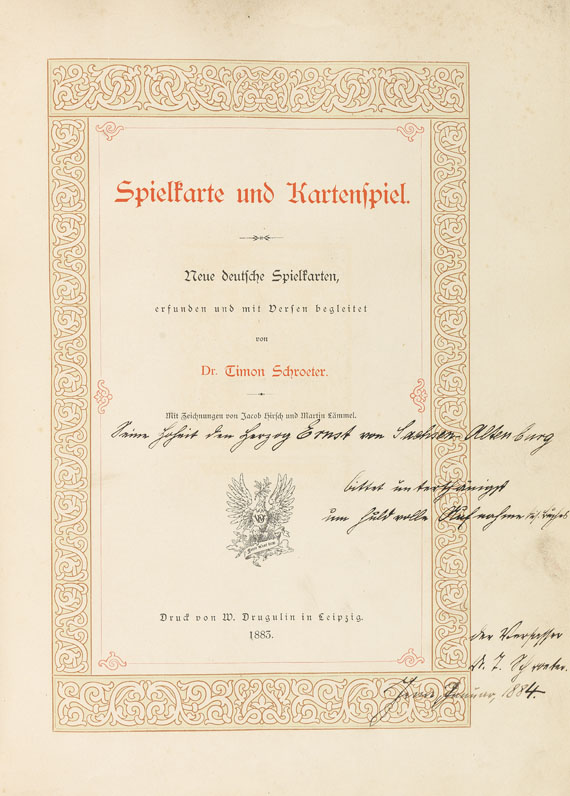 Spielkarte und Kartenspiel.
Neue deutsche Spielkarten,
erfunden und mit Versen begleitet
von
Dr. Timon Schroeter.
Mit Zeichnungen von Jacob Hirsch und Martin Lämmel.
Seine Hoheit den Herzog Ernst von Sachsen-Altenburg
bittet unterthänigst
um huldvolle Aufnahme
Druck von W. Drugulin in Leipzig.
1883.
der Verfasser
Schroeter.
Jena, Januar, 1884.